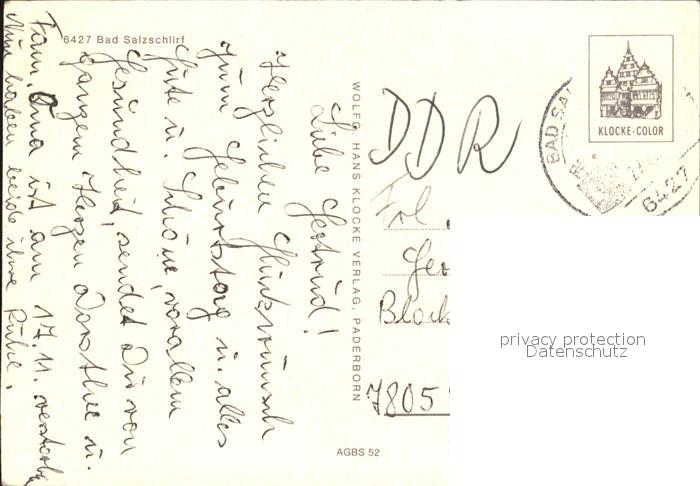 6427 Bad Salzschlirf
Liebe Gertrud!
Herzlichen Glückwunsch
zum Geburtstag u. alles
Gute u. Schöne, vorallem
Gesundheit, sendet Dir von
ganzem Herzen Dorothee u.
Fam. Oma ist am 17.11. verstorben
Nun haben beide ihre Ruhe.
WOLFG. HANS KLOCKE VERLAG, PADERBORN
AGBS 52
DDR
KLOCKE-COLOR
BAD SAL
6427
Frl
Ger
Block
7805
privacy protection
Datenschutz